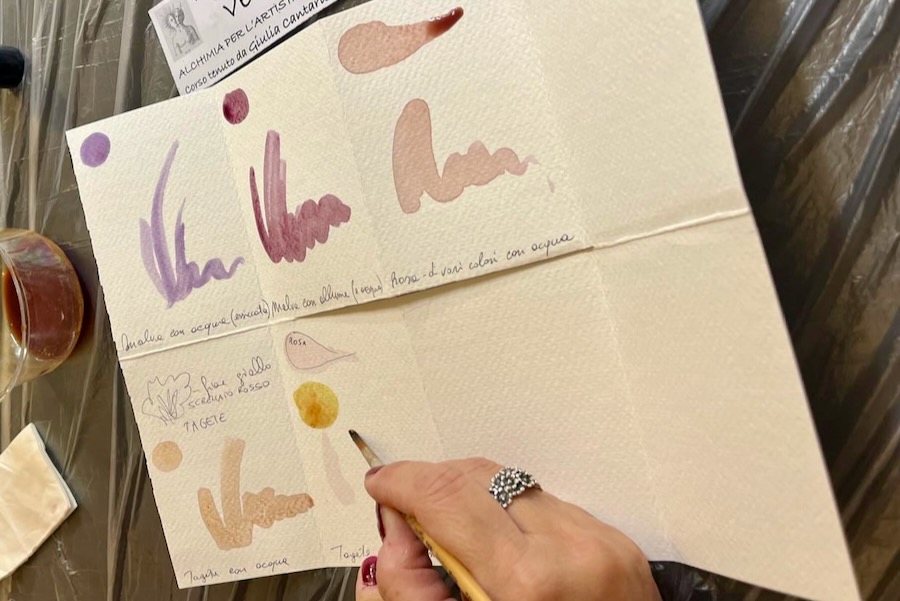 VE
ALCHIMIA PER L'ARTIST
corso tenuto da Giulia Cantar
Malva con acqua (essiccata)
Malva con allume (e acqua)
Rosa - d vari colori con acqua
fiore giallo
SCREZIATO ROSSO
TAGETE
ROSA
Tagete con acqua
Tagete